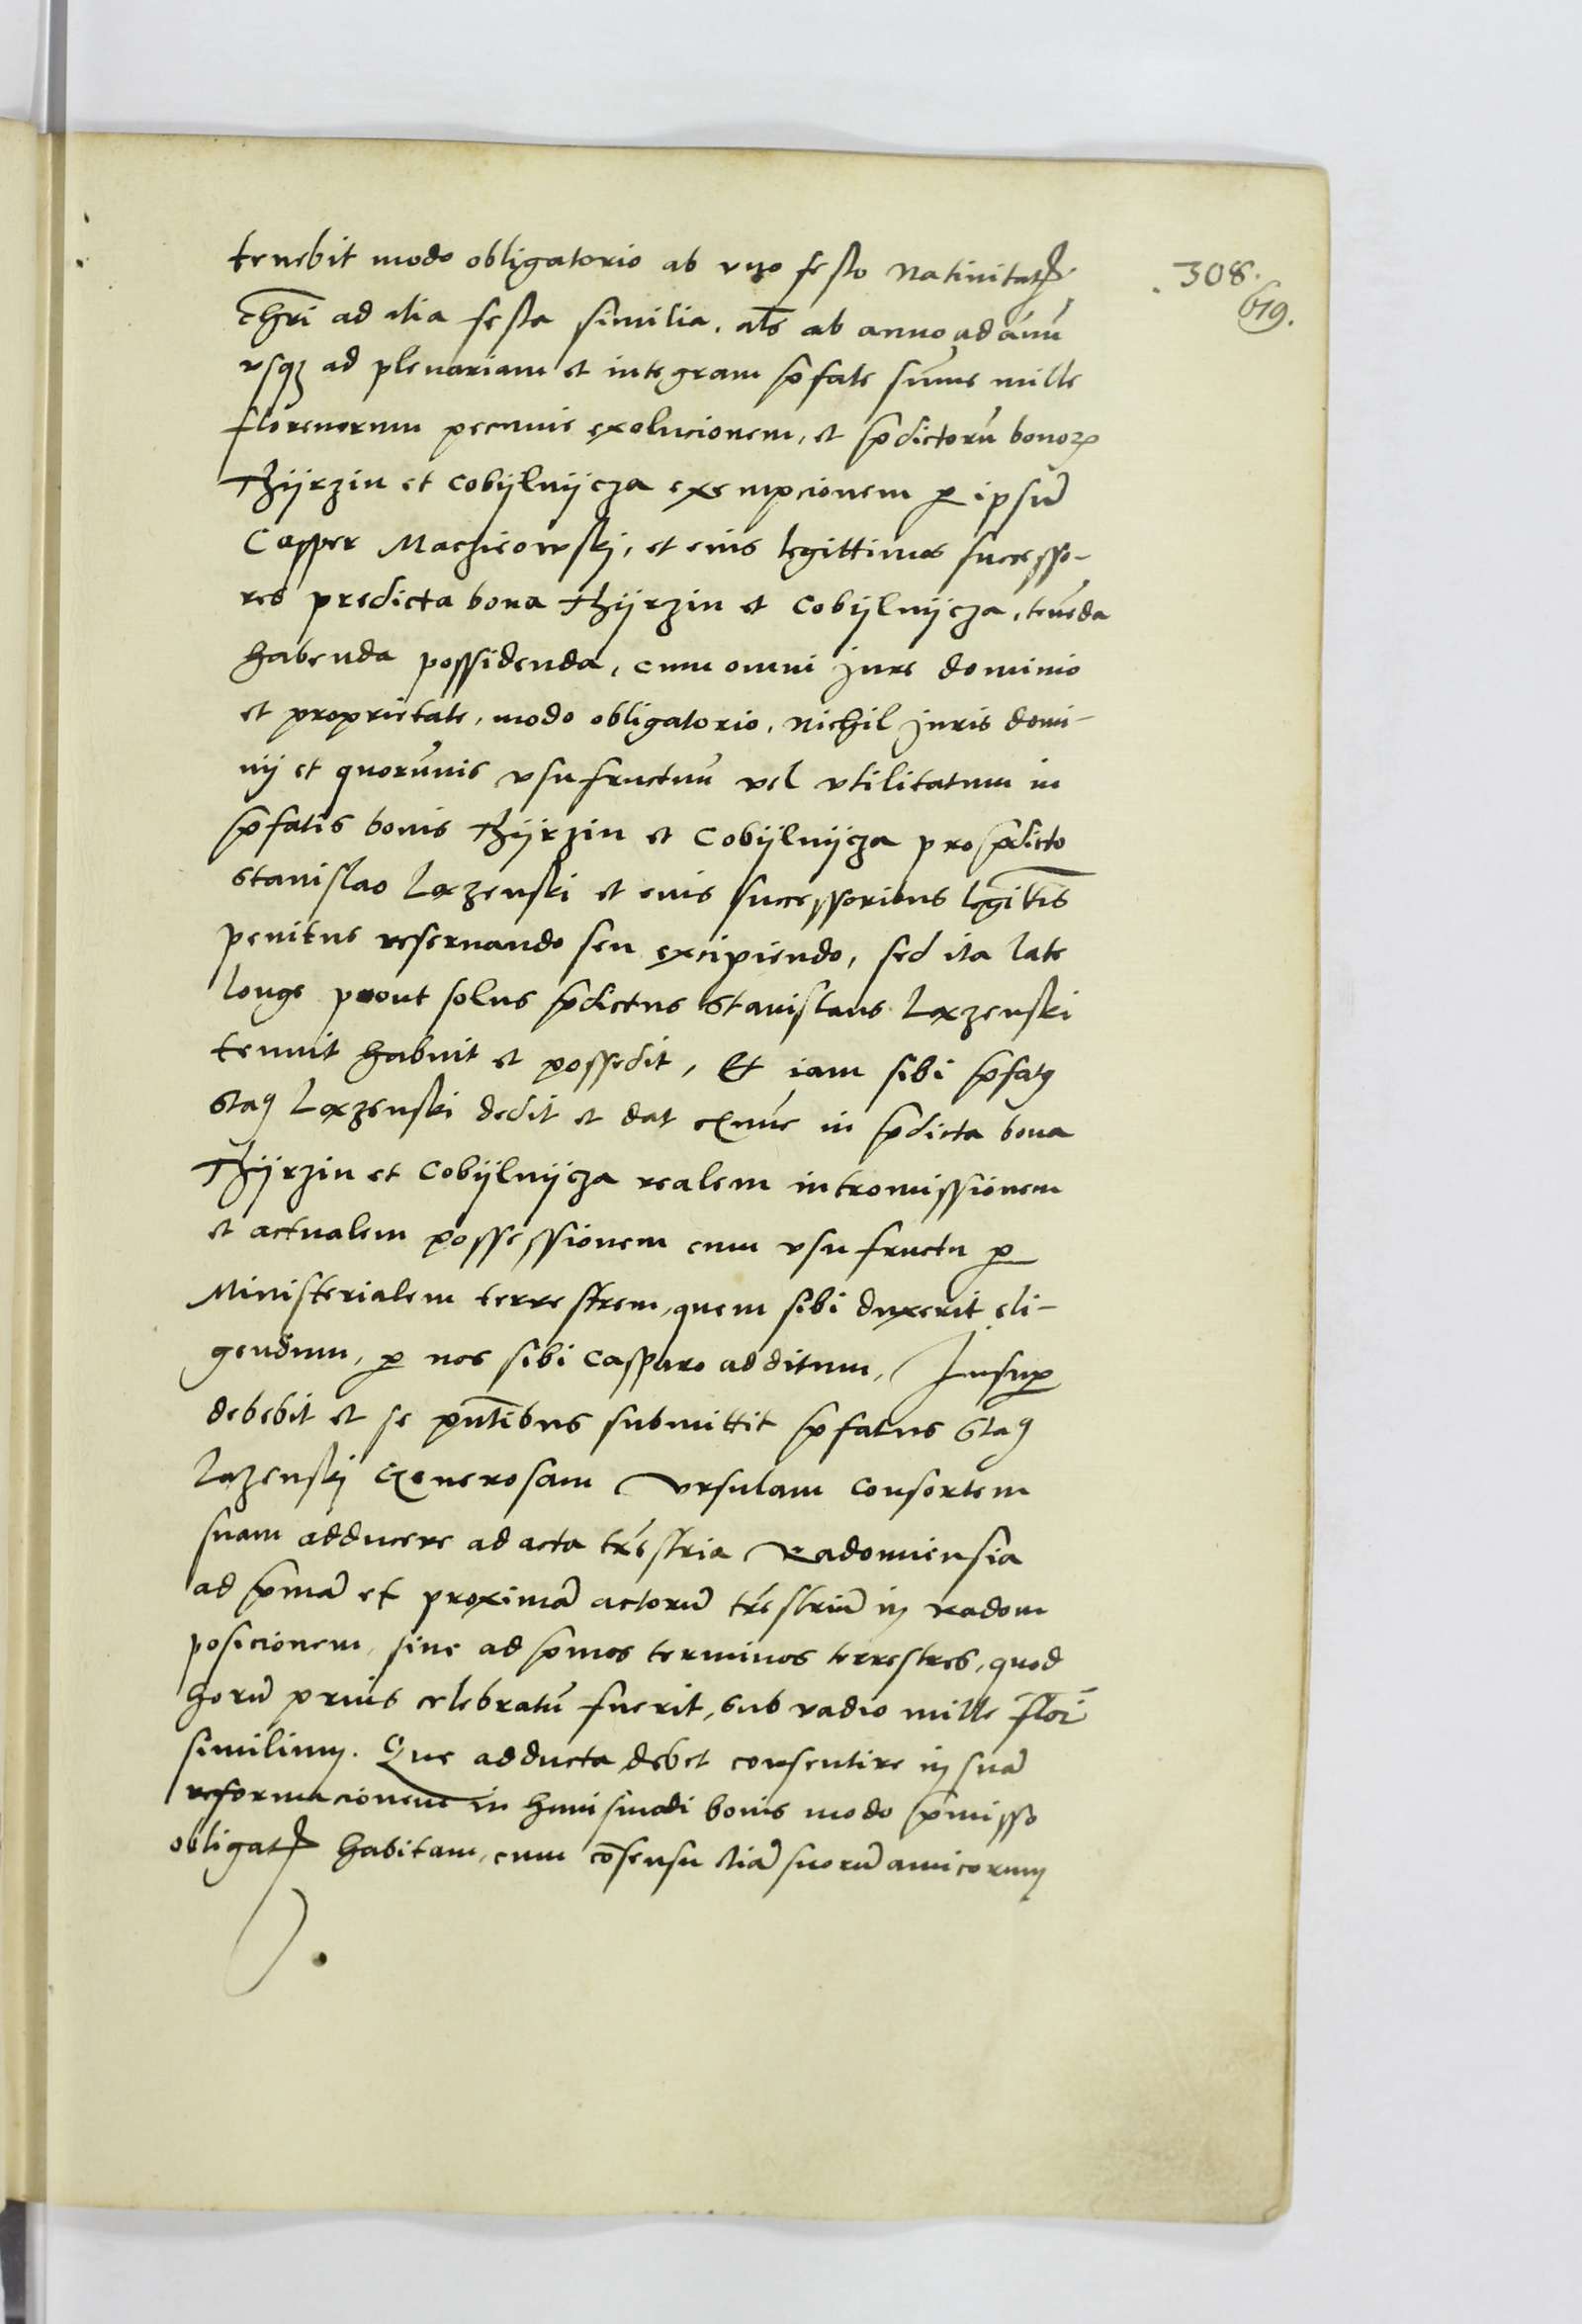 tenebit modo obligatorio ab vno festo Natiuitatꝭ
.308.
619.
Chri̅ ad alia festa similia. al̅s ab anno ad an̅u̅
vsqꝫ ad plenariam et integram p̱fate sum̅e mille
florenorum pecunie exolucionem, et p̱dictoru̅ bonoꝝ
Thyrzin et Cobÿlnÿcza exempcionem ꝑ ipsu̅
Casper Maczieowskj, et eius legittimos successo-
res predicta bona Thÿrzin et Cobÿlnÿcza, tene̅da
habenda possidenda, cum omni jure dominio
et proprietate, modo obligatorio, Nichil juris domi-
nÿ et quoru̅uis vsufructuu̅ vel vtilitatum in
p̱fatis bonis Thÿrzin et Cobÿlnÿcza pro p̱dicto
Stanislao Lazenski et eius successoribus legit̅is
penitus reseruando seu excipiendo, sed ita late
longe prout solus p̱dictus Stanislaus Lazenski
tenuit habuit et possedit, Et iam sibi p̱fatꝰ
Staꝰ Lazenski dedit et dat ex nu̅c in p̱dicta bona
Thÿrzin et Cobÿlnÿcza realem intromissionem
et actualem possessionem cum vsufructu ꝑ
Ministerialem terrestrem, quem sibi duxerit eli-
gendum, ꝑ nos sibi Casparo additum, Insuꝑ
debebit et se pn̅tibus submittit p̱fatus Staꝰ
Lazenskj Generosam Vrsulam Consortem
suam adducere ad acta tre̅stria Radomiensia
ad p̱ma̅ et proxima̅ actoru̅ tre̅striu̅ in Radom
posicionem, siue ad p̱mos terminos terrestres, quod
horu̅ prius celebratu̅ fuerit, sub vadio mille flor̅
similium. Que adducta debet consentire in sua̅
reformacionem in huiusmodi bonis modo p̱misso
obligatꝭ habitam, cum co̅sensu etia̅ suoru̅ amicorum